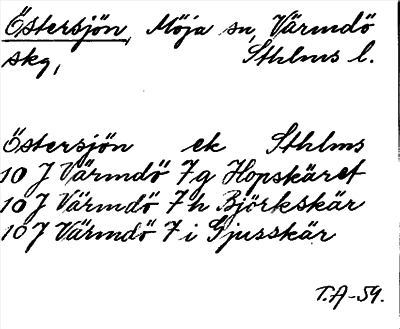 Östersjön, Möja sn, Värmdö
skg, Sthlms l.
Östersjön ek Sthlms
10 J Värmdö 7 g Hopskäret
10 J Värmdö 7 h Björkskär
10 J Värmdö 7 i Gjusskär
T.A-59.